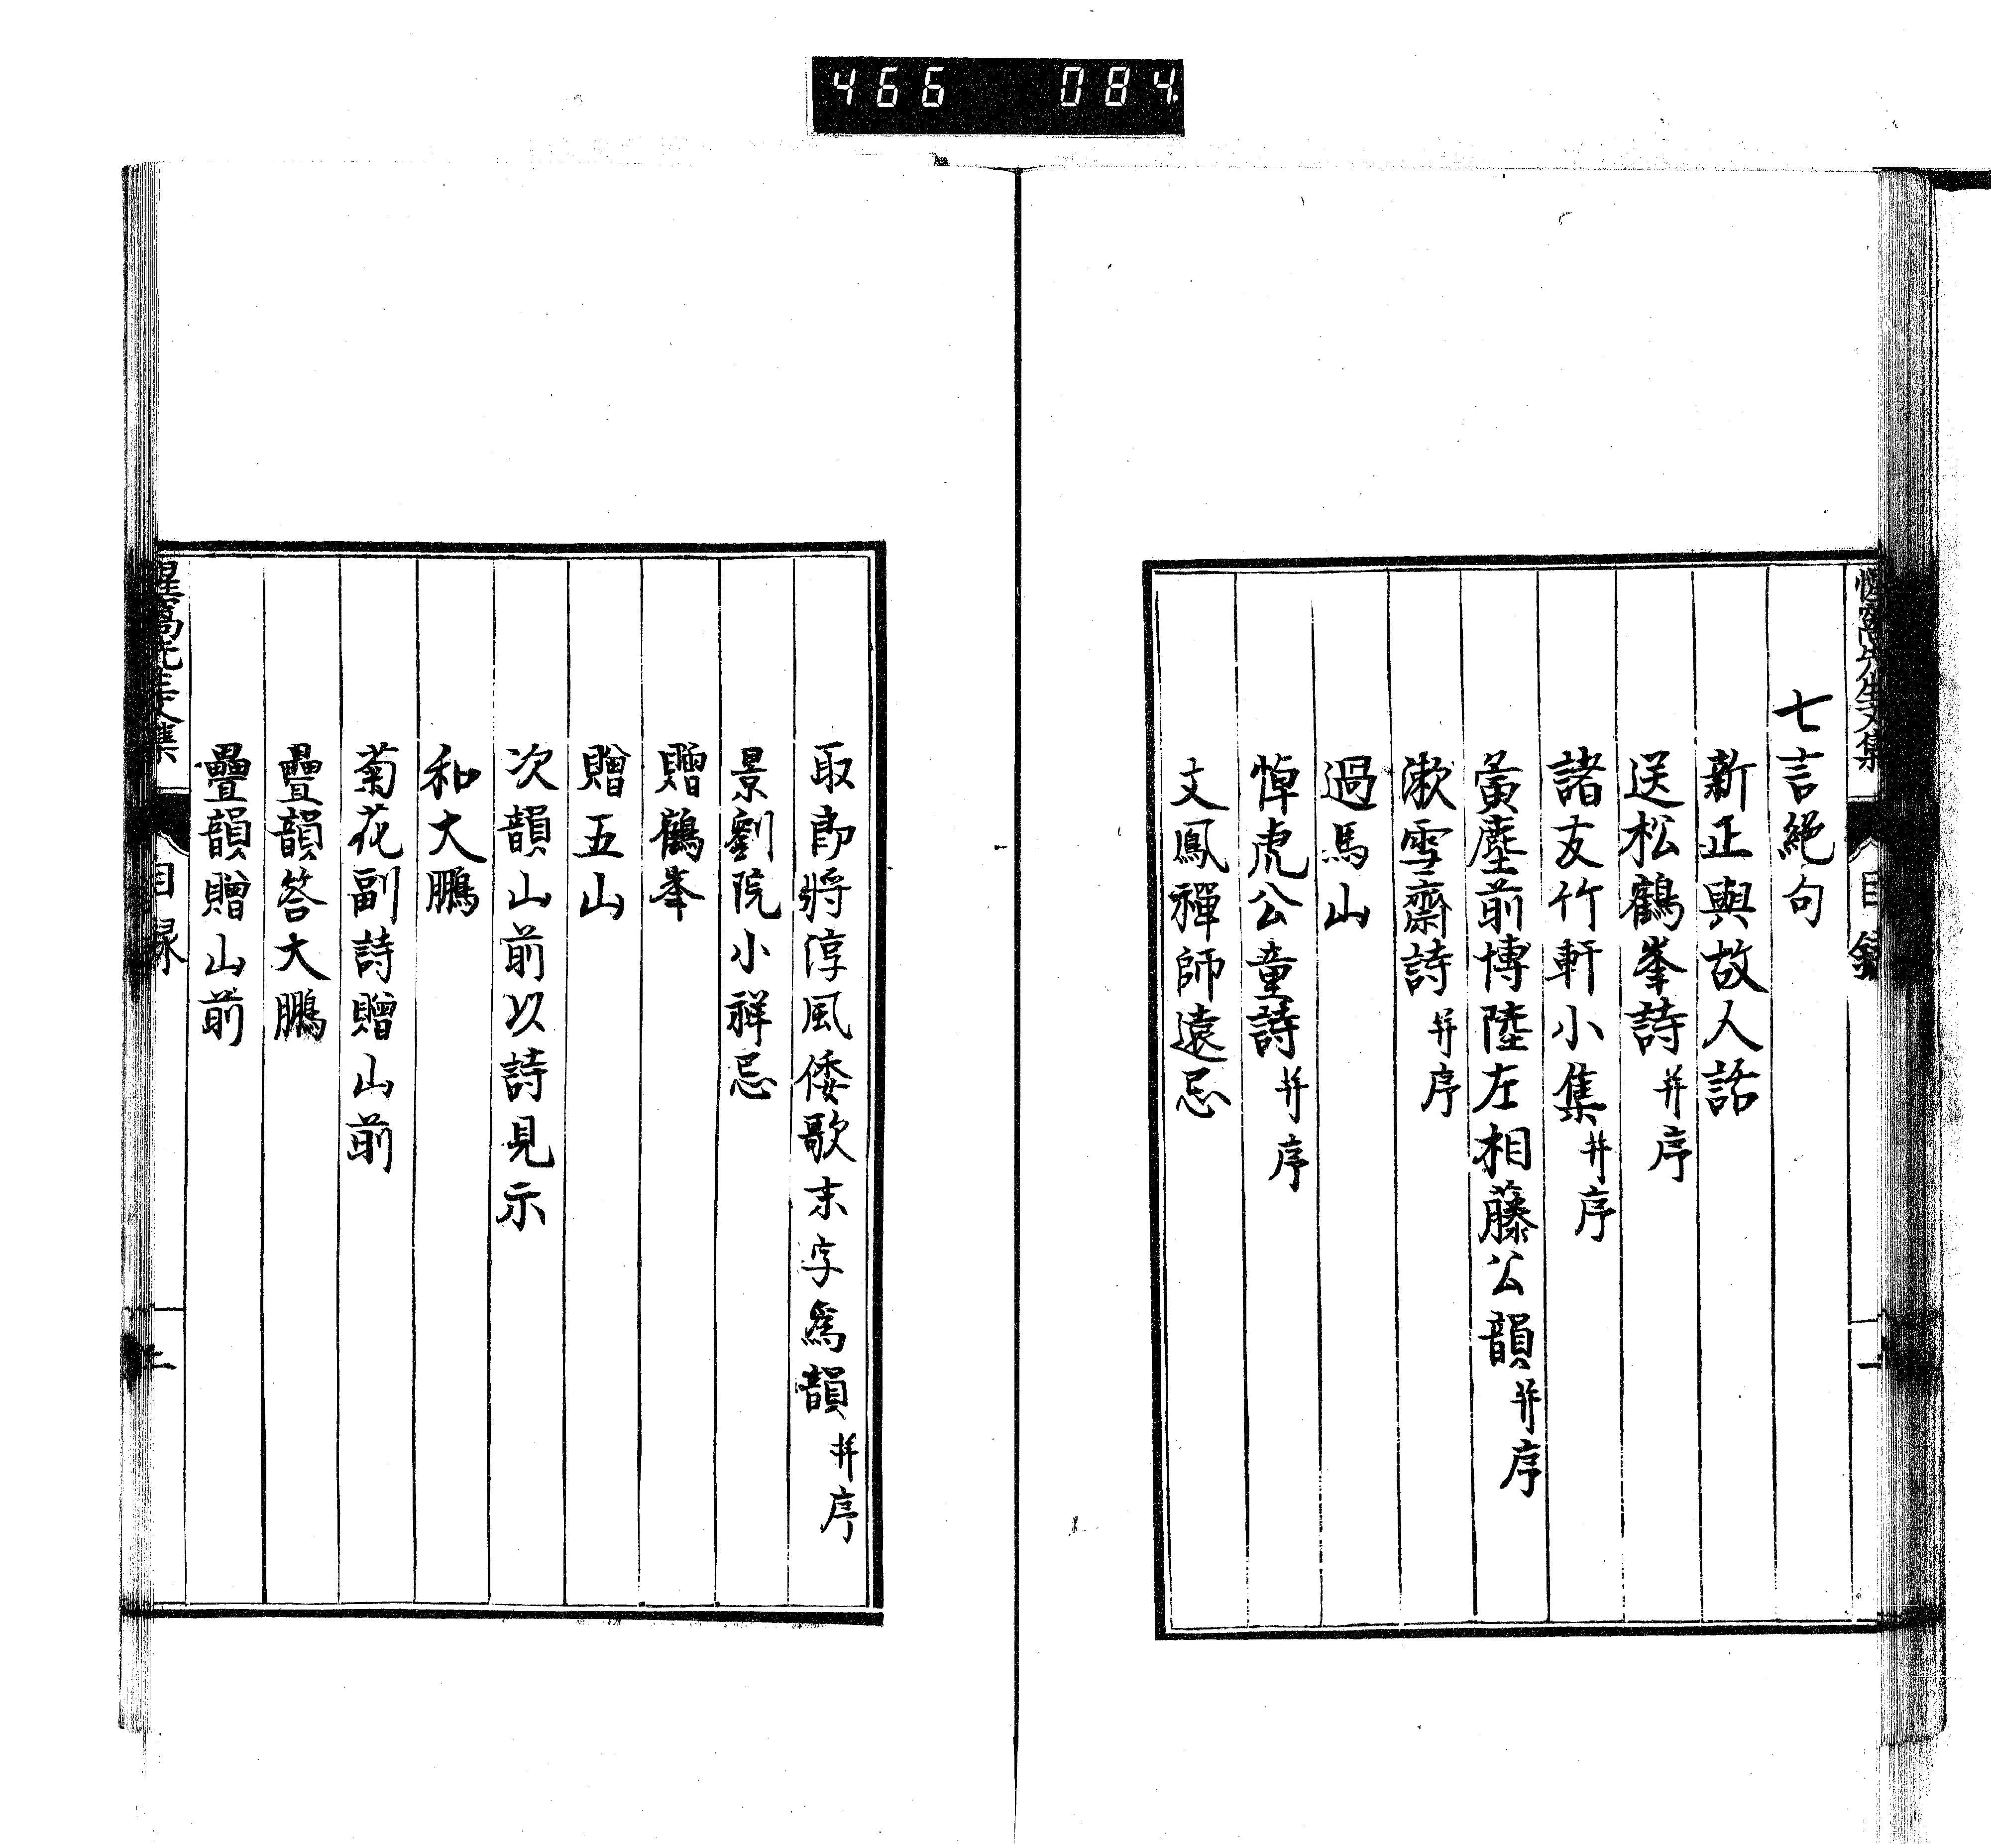 466 084
惺窩先生文集 目錄 二
七言絕句
新正與故人話
送松鶴峯詩 并序
諸友竹軒小集 并序
黃塵前博陸左相藤公韻 并序
漱雪齋詩 并序
過馬山
悼虎公童詩 并序
文鳳禪師遠忌
取郎將淳風倭歌末字爲韻 并序
景劉院小祥忌
贈鶴峯
贈五山
次韻山前以詩見示
和大鵬
菊花副詩贈山前
疊韻答大鵬
疊韻贈山前
惺窩先生文集 目錄 二